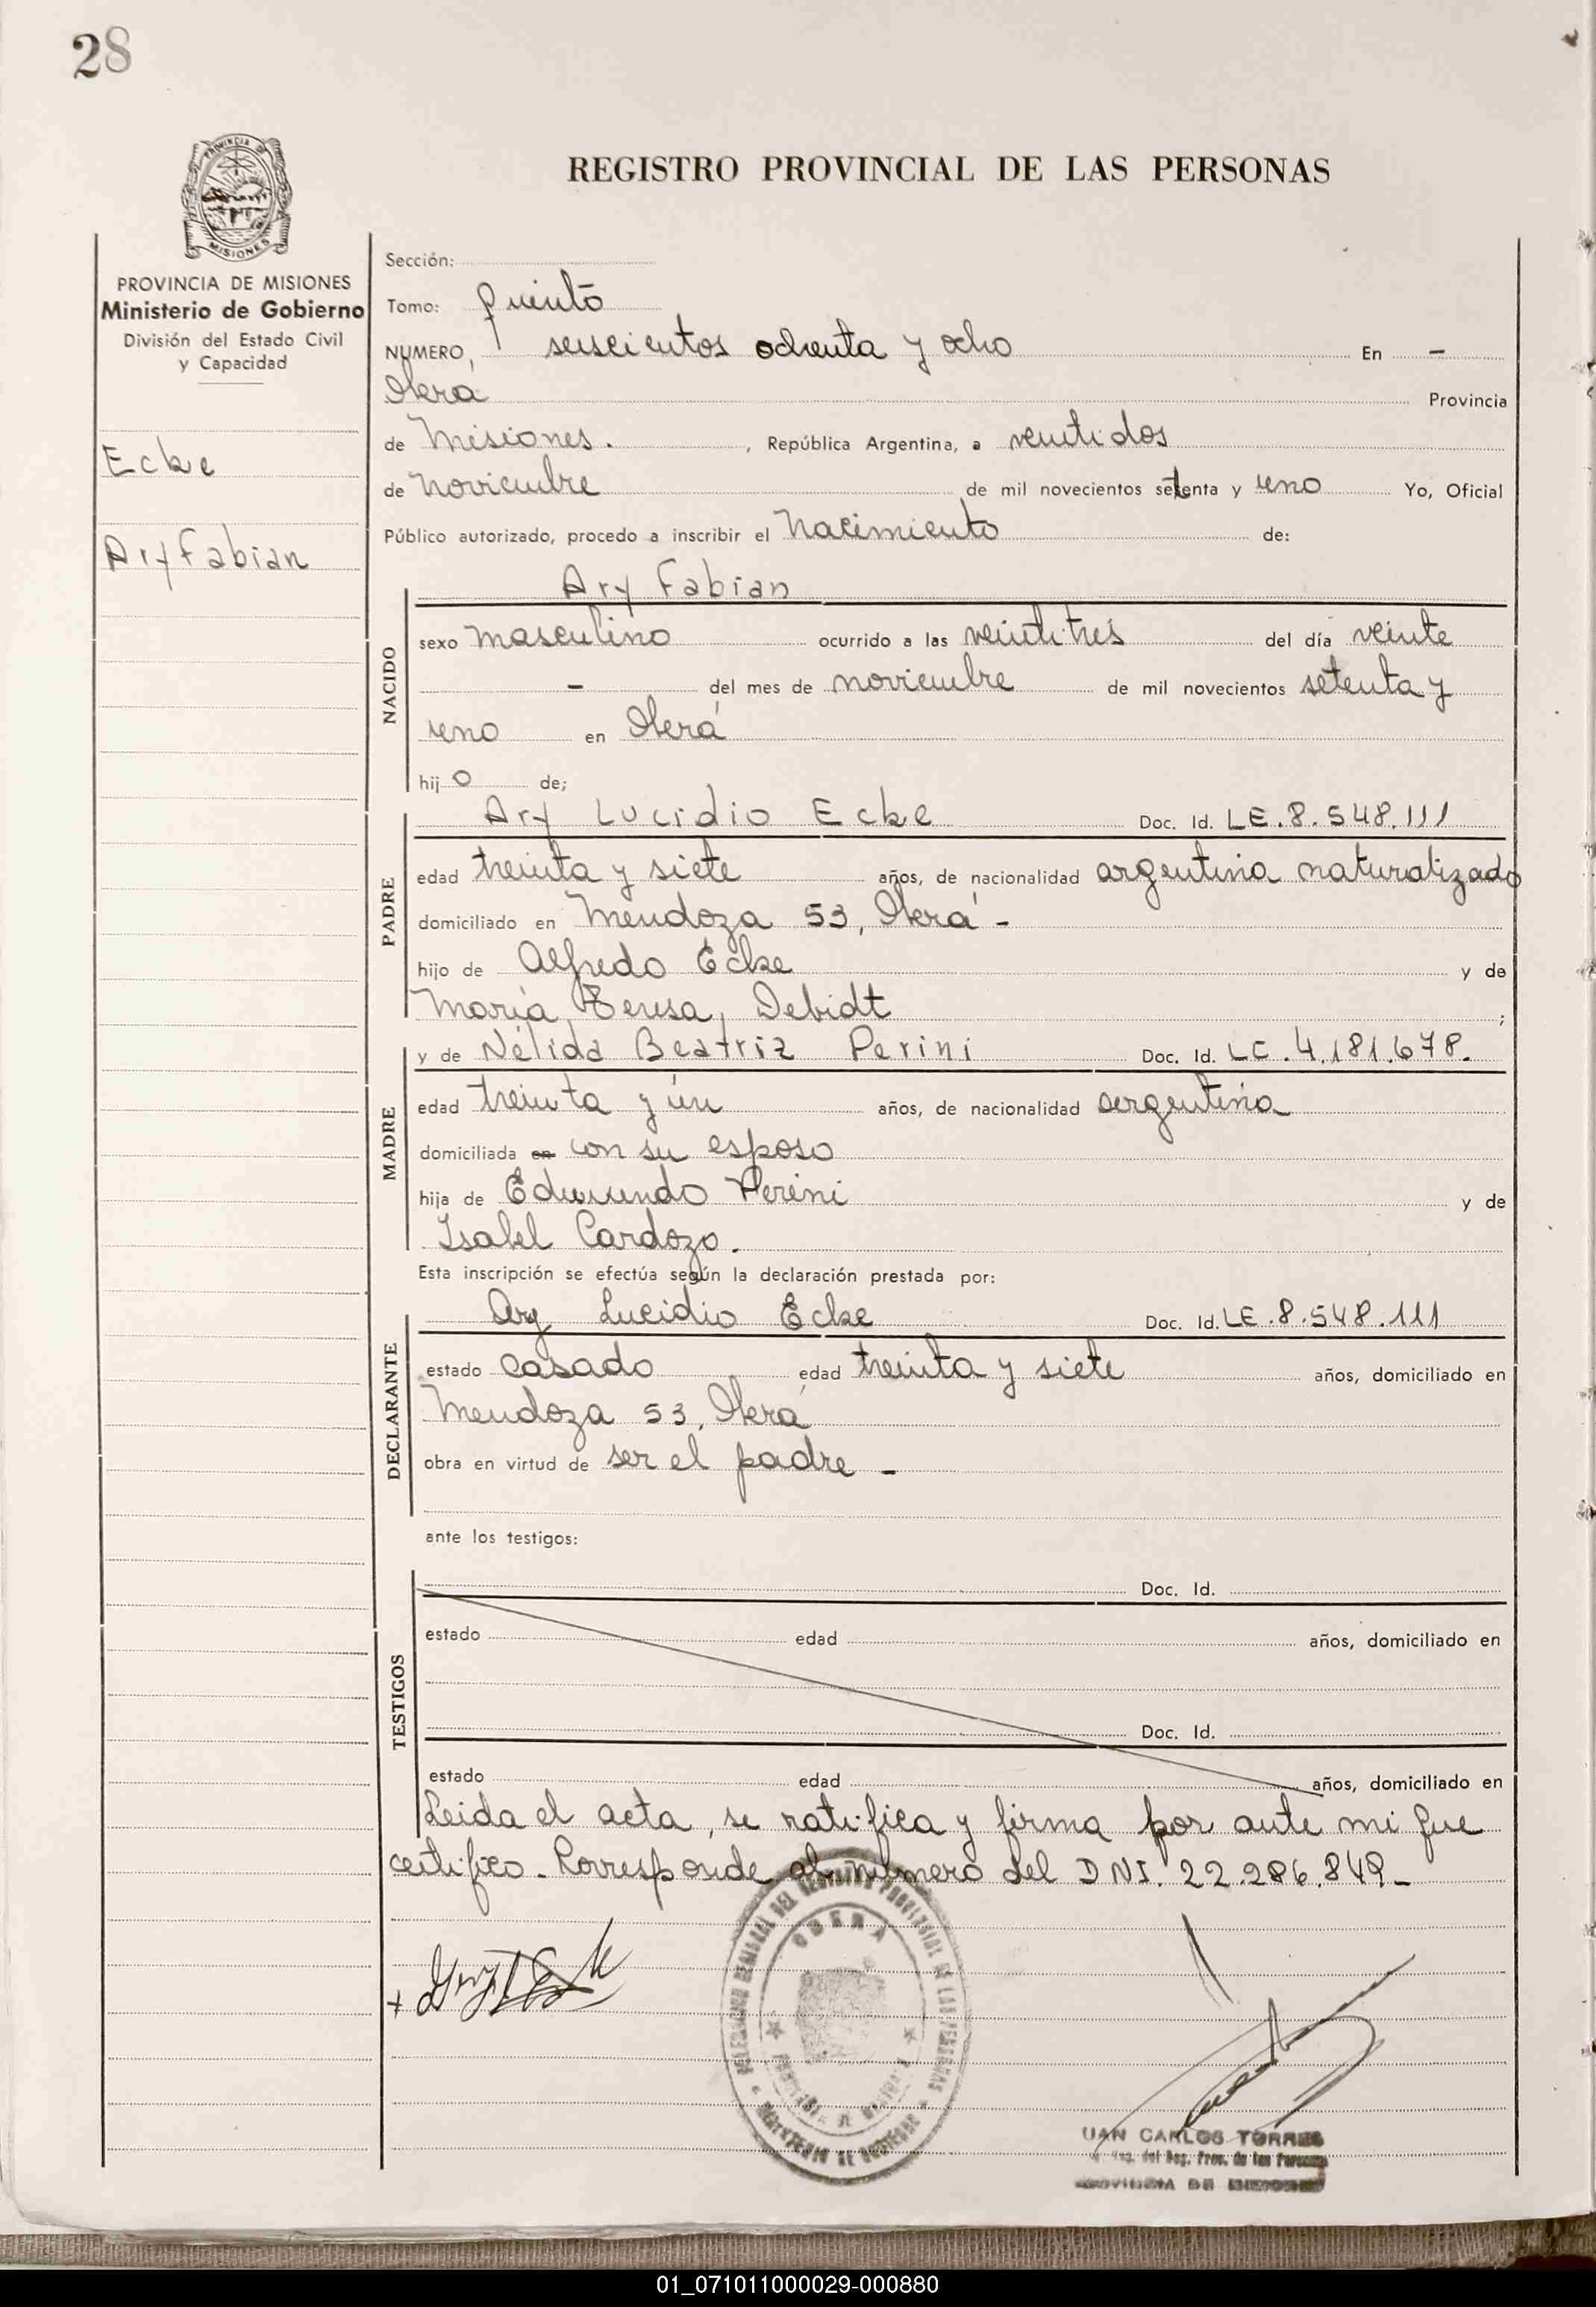 28
PROVINCIA DE
MISIONES
REGISTRO PROVINCIAL DE LAS PERSONAS
PROVINCIA DE MISIONES
Ministerio de Gobierno
División del Estado Civil
y Capacidad
Ecke
Ary Fabian
Sección:
Tomo: quinto
NUMERO, seiscientos ochenta y ocho En -
Oberá Provincia
de Misiones. , República Argentina, a veintidos
de noviembre de mil novecientos setenta y uno Yo, Oficial
Público autorizado, procedo a inscribir el Nacimiento de:
NACIDO
Ary Fabian
sexo masculino ocurrido a las veintitres del día veinte
- del mes de noviembre de mil novecientos setenta y
uno en Oberá
hijo de;
PADRE
Ary Lucidio Ecke Doc. Id. LE.8.548.111
edad treinta y siete años, de nacionalidad argentina naturalizado
domiciliado en Mendoza 53, Oberá -
hijo de Alfredo Ecke y de
María Teresa Debidt ;
MADRE
y de Nélida Beatriz Perini Doc. Id. LC.4.181.678.
edad treinta y un años, de nacionalidad argentina
domiciliada en con su esposo
hija de Edmundo Perini y de
Isabel Cardozo.
Esta inscripción se efectúa según la declaración prestada por:
DECLARANTE
Ary Lucidio Ecke Doc. Id. LE.8.548.111
estado casado edad treinta y siete años, domiciliado en
Mendoza 53, Oberá
obra en virtud de ser el padre -
ante los testigos:
TESTIGOS
Doc. Id.
estado edad años, domiciliado en
Doc. Id.
estado edad años, domiciliado en
Leida el acta, se ratifica y firma por ante mi que
certifico - Corresponde al número del DNI. 22.286.849 -
OBERA
UAN CARLOS TORRES
del Reg. Prov. de las Personas
01_071011000029-000880